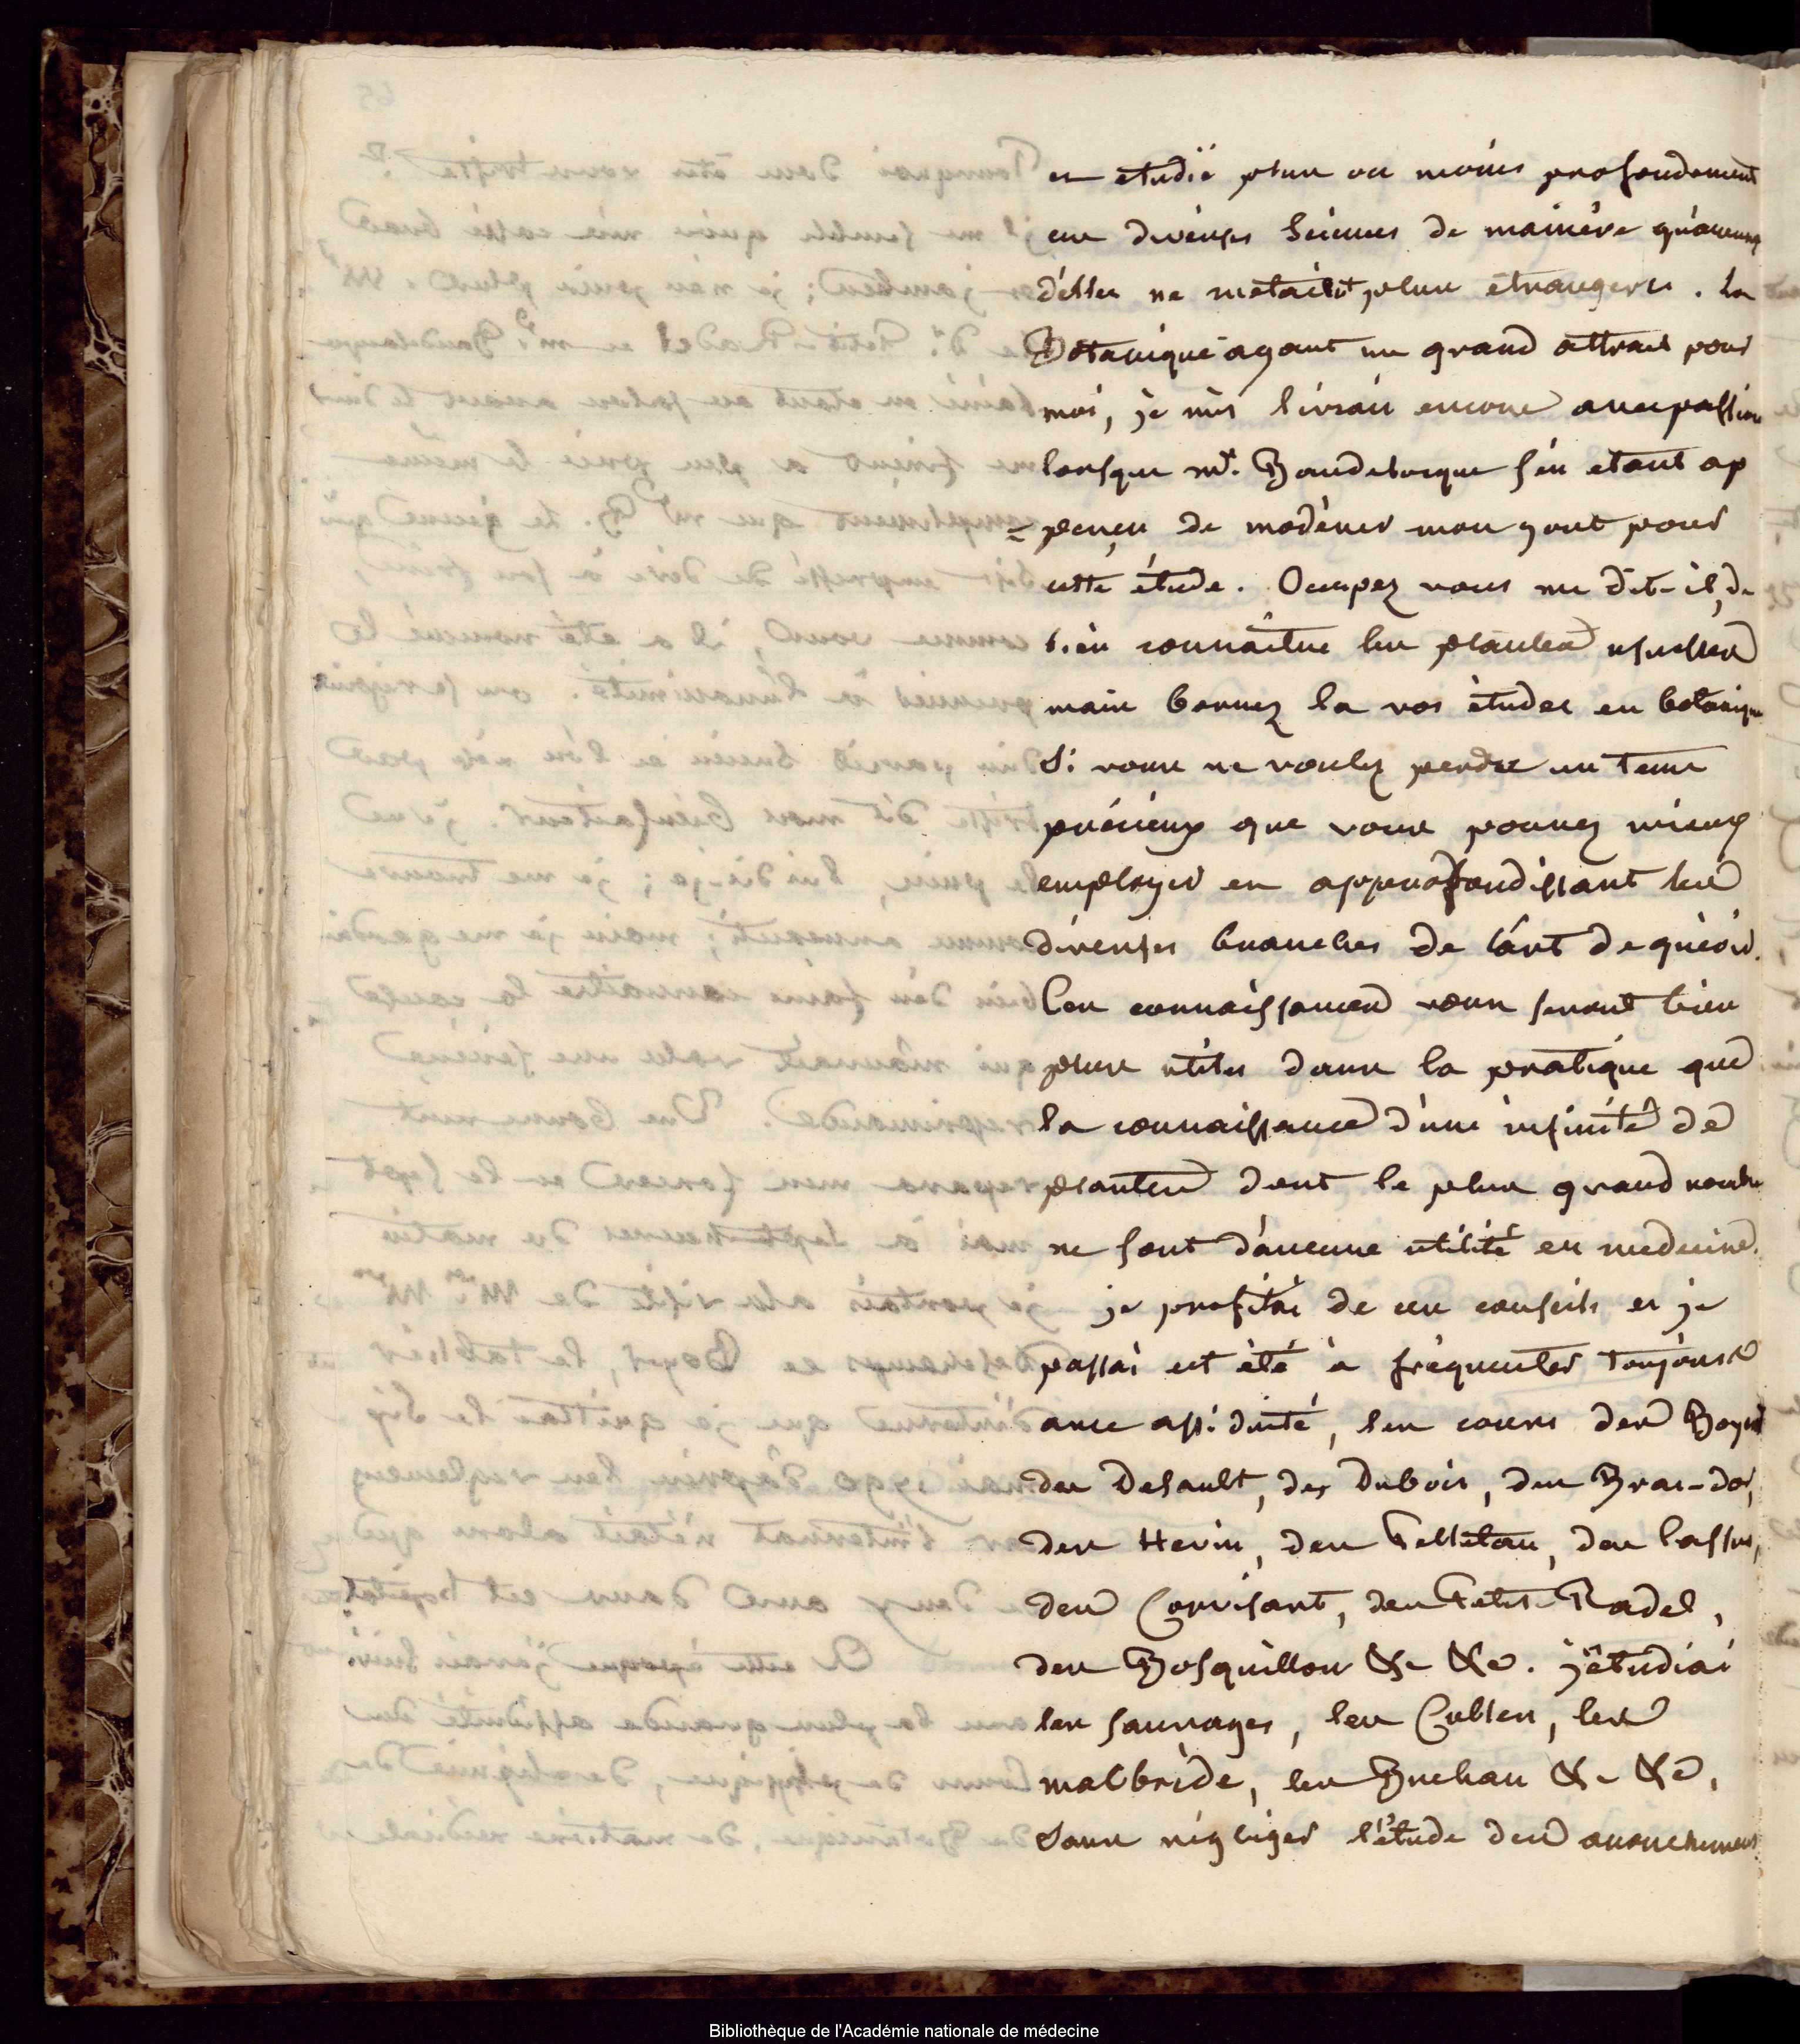 et etudié plus ou moins profondement
ces diverses sciences de manière qu'aucunes
d'elles ne m'etaient plus étrangeres. La
Botanique ayant un grand attrait pour
moi, je m'y livrais encore avec passion
lorsque mr. Baudelocque s'en etant ap
= perçu de modérer mon gout pour
cette étude. Occupez vous me dit-il, de
bien connaître les plantes usuelles
mais bornez la vos études en botanique
si vous ne voulez perdre un tems
précieux que vous pouvez mieux
employer en approfondissant les
diverses branches de l'art de guérir.
Ces connaissances vous seront bien
plus utiles dans la pratique que
la connaissance d'une infinité de
plantes dont le plus grand nombre
ne sont d'aucune utilité en medecine.
je profitai de ces conseils et je
passai cet été à fréquenter toujours
avec assiduité, les cours des Boyer
des Desault, des Dubois, des Bras-dor,
des Hevin, des Pelletan, des Lassus,
des Corvisart, des Petit-Radel,
des Bosquillon &c &c. j'étudiai
les sauvages, les Cullen, les
macbride, les Buchan &c &c,
sans négliger l'étude des accouchemens
Bibliothèque de l'Académie nationale de médecine